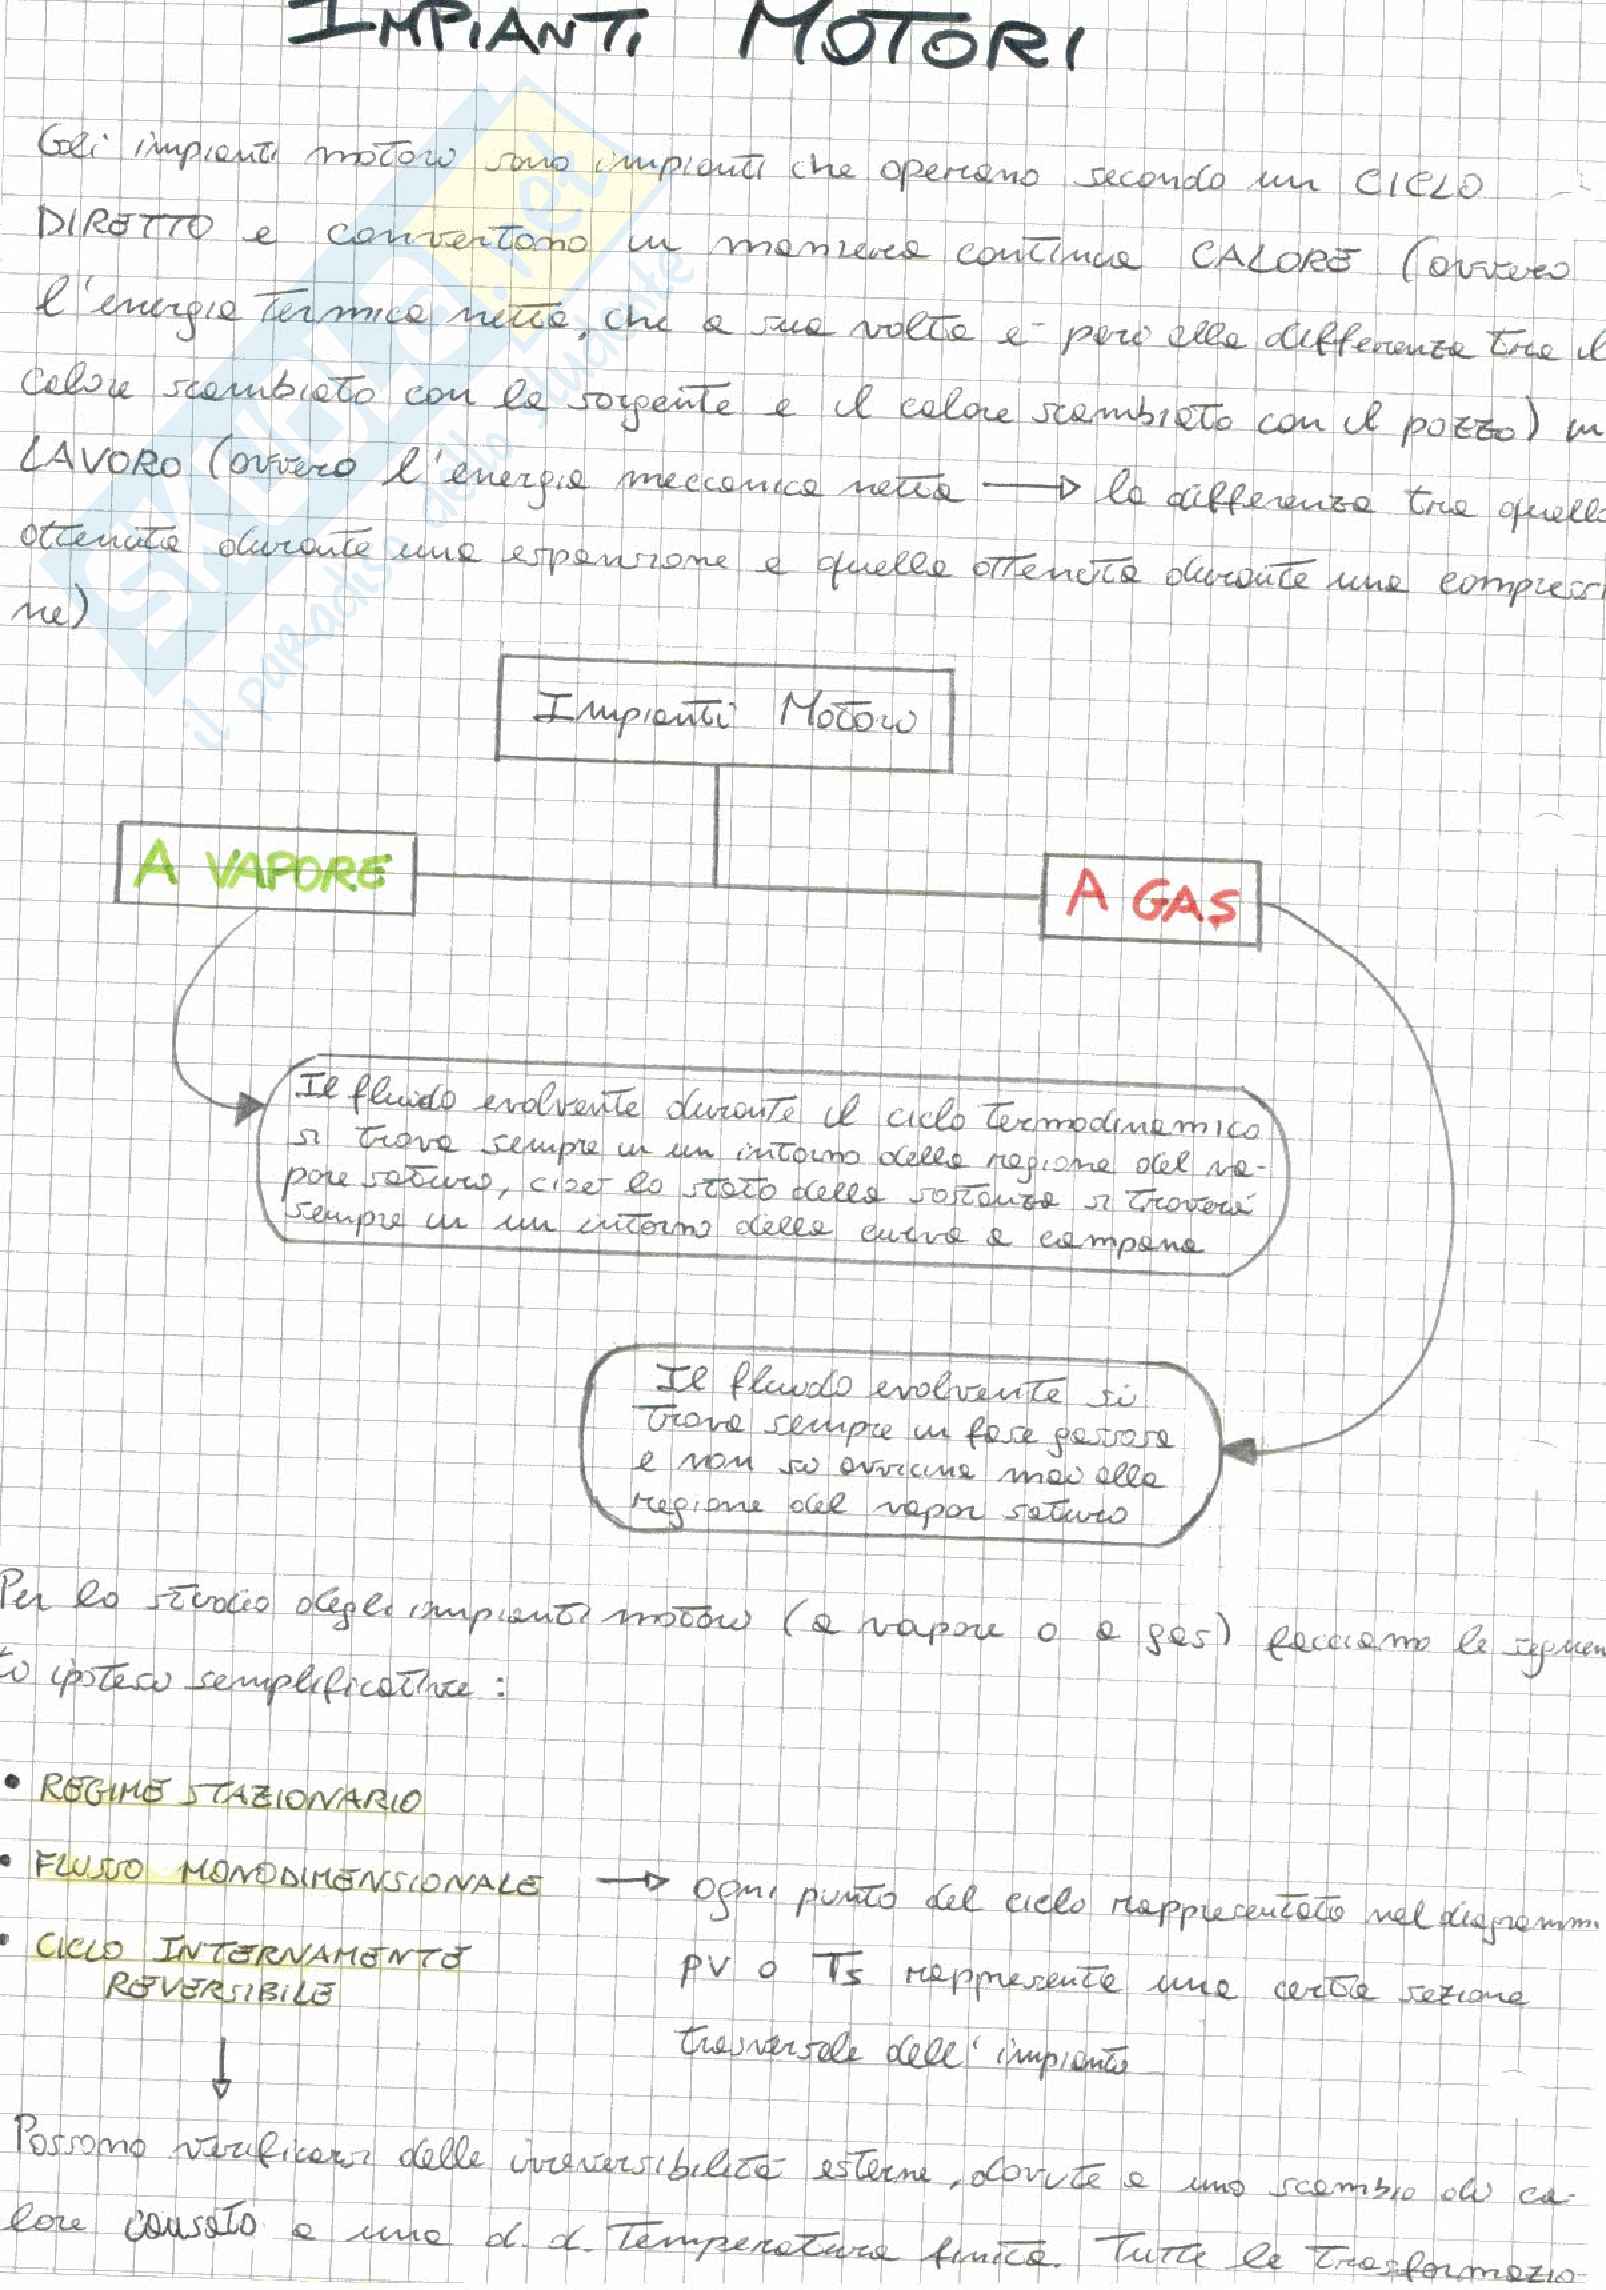 IMPIANTI MOTORI
Gli impianti motori sono impianti che operano secondo un CICLO
DIRETTO e convertono in maniera continua CALORE (ovvero
l'energia termica netta, che a sua volta è pari alla differenza tra il
calore scambiato con la sorgente e il calore scambiato con il pozzo) in
LAVORO (ovvero l'energia meccanica netta → la differenza tra quella
ottenuta durante una espansione e quella ottenuta durante una compressi
ne)
SKUOLA.net
il paradiso dello studente
Impianti Motori
A VAPORE
A GAS
Il fluido evolvente durante il ciclo termodinamico
si trova sempre in un intorno della regione del va-
pore saturo, cioè lo stato della sostanza si troverà
sempre in un intorno della curva a campana
Il fluido evolvente si
trova sempre in fase gassosa
e non si avvicina mai alla
regione del vapor saturo
Per lo studio degli impianti motori (a vapore o a gas) facciamo le seguen
ti ipotesi semplificative:
• REGIME STAZIONARIO
• FLUSSO MONODIMENSIONALE → ogni punto del ciclo rappresentato nel diagramm
• CICLO INTERNAMENTE
REVERSIBILE
pV o Ts rappresenta una certa sezione
trasversale dell'impianto
↓
Possono verificarsi delle irreversibilità esterne, dovute a uno scambio di ca-
lore causato a una d.d. temperatura finita. Tutte le trasformazio-